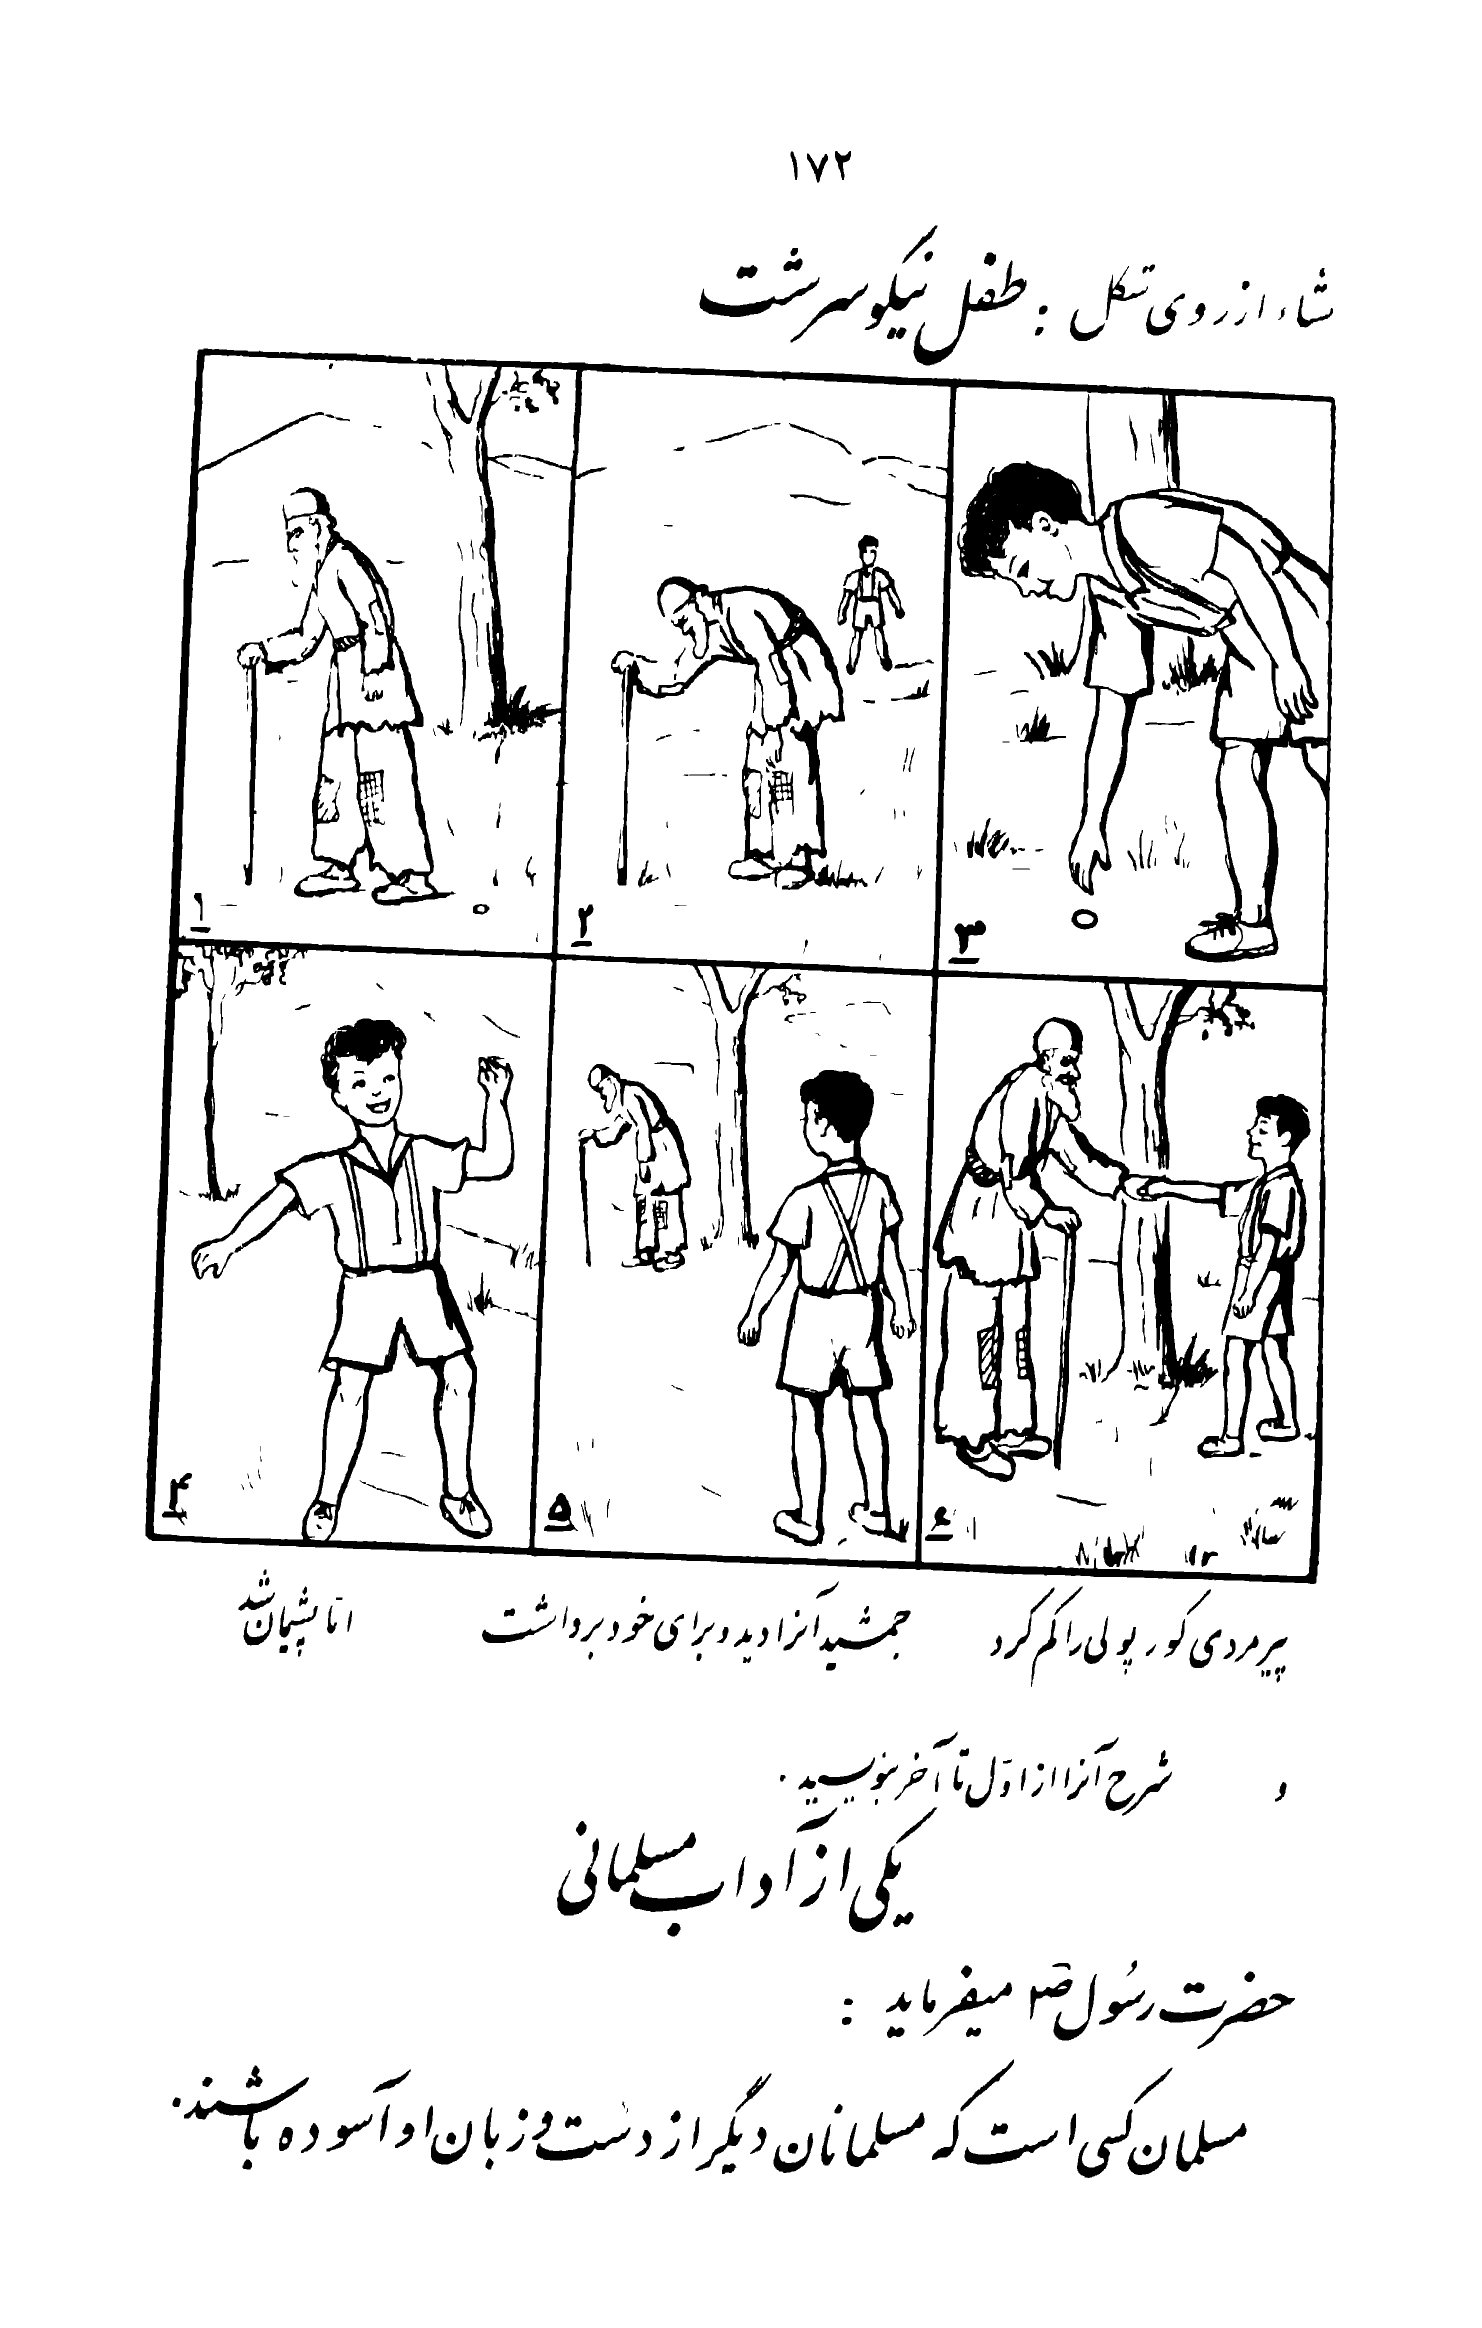 ۱۷۲
شاء از روی شکل : طفل نیکو سرشت
۱
۲
۳
۴
۵
۶
پیرمردی کور پولی را گم کرد جمشید آنرا دید و برای خود برداشت اما پشیمان شد
و شرح آنرا از اوّل تا آخر بنویسید .
یکی از آداب مسلمانی
حضرت رسُول ص میفرماید :
مسلمان کسی است که مسلمانان دیگر از دست و زبان او آسوده باشند .